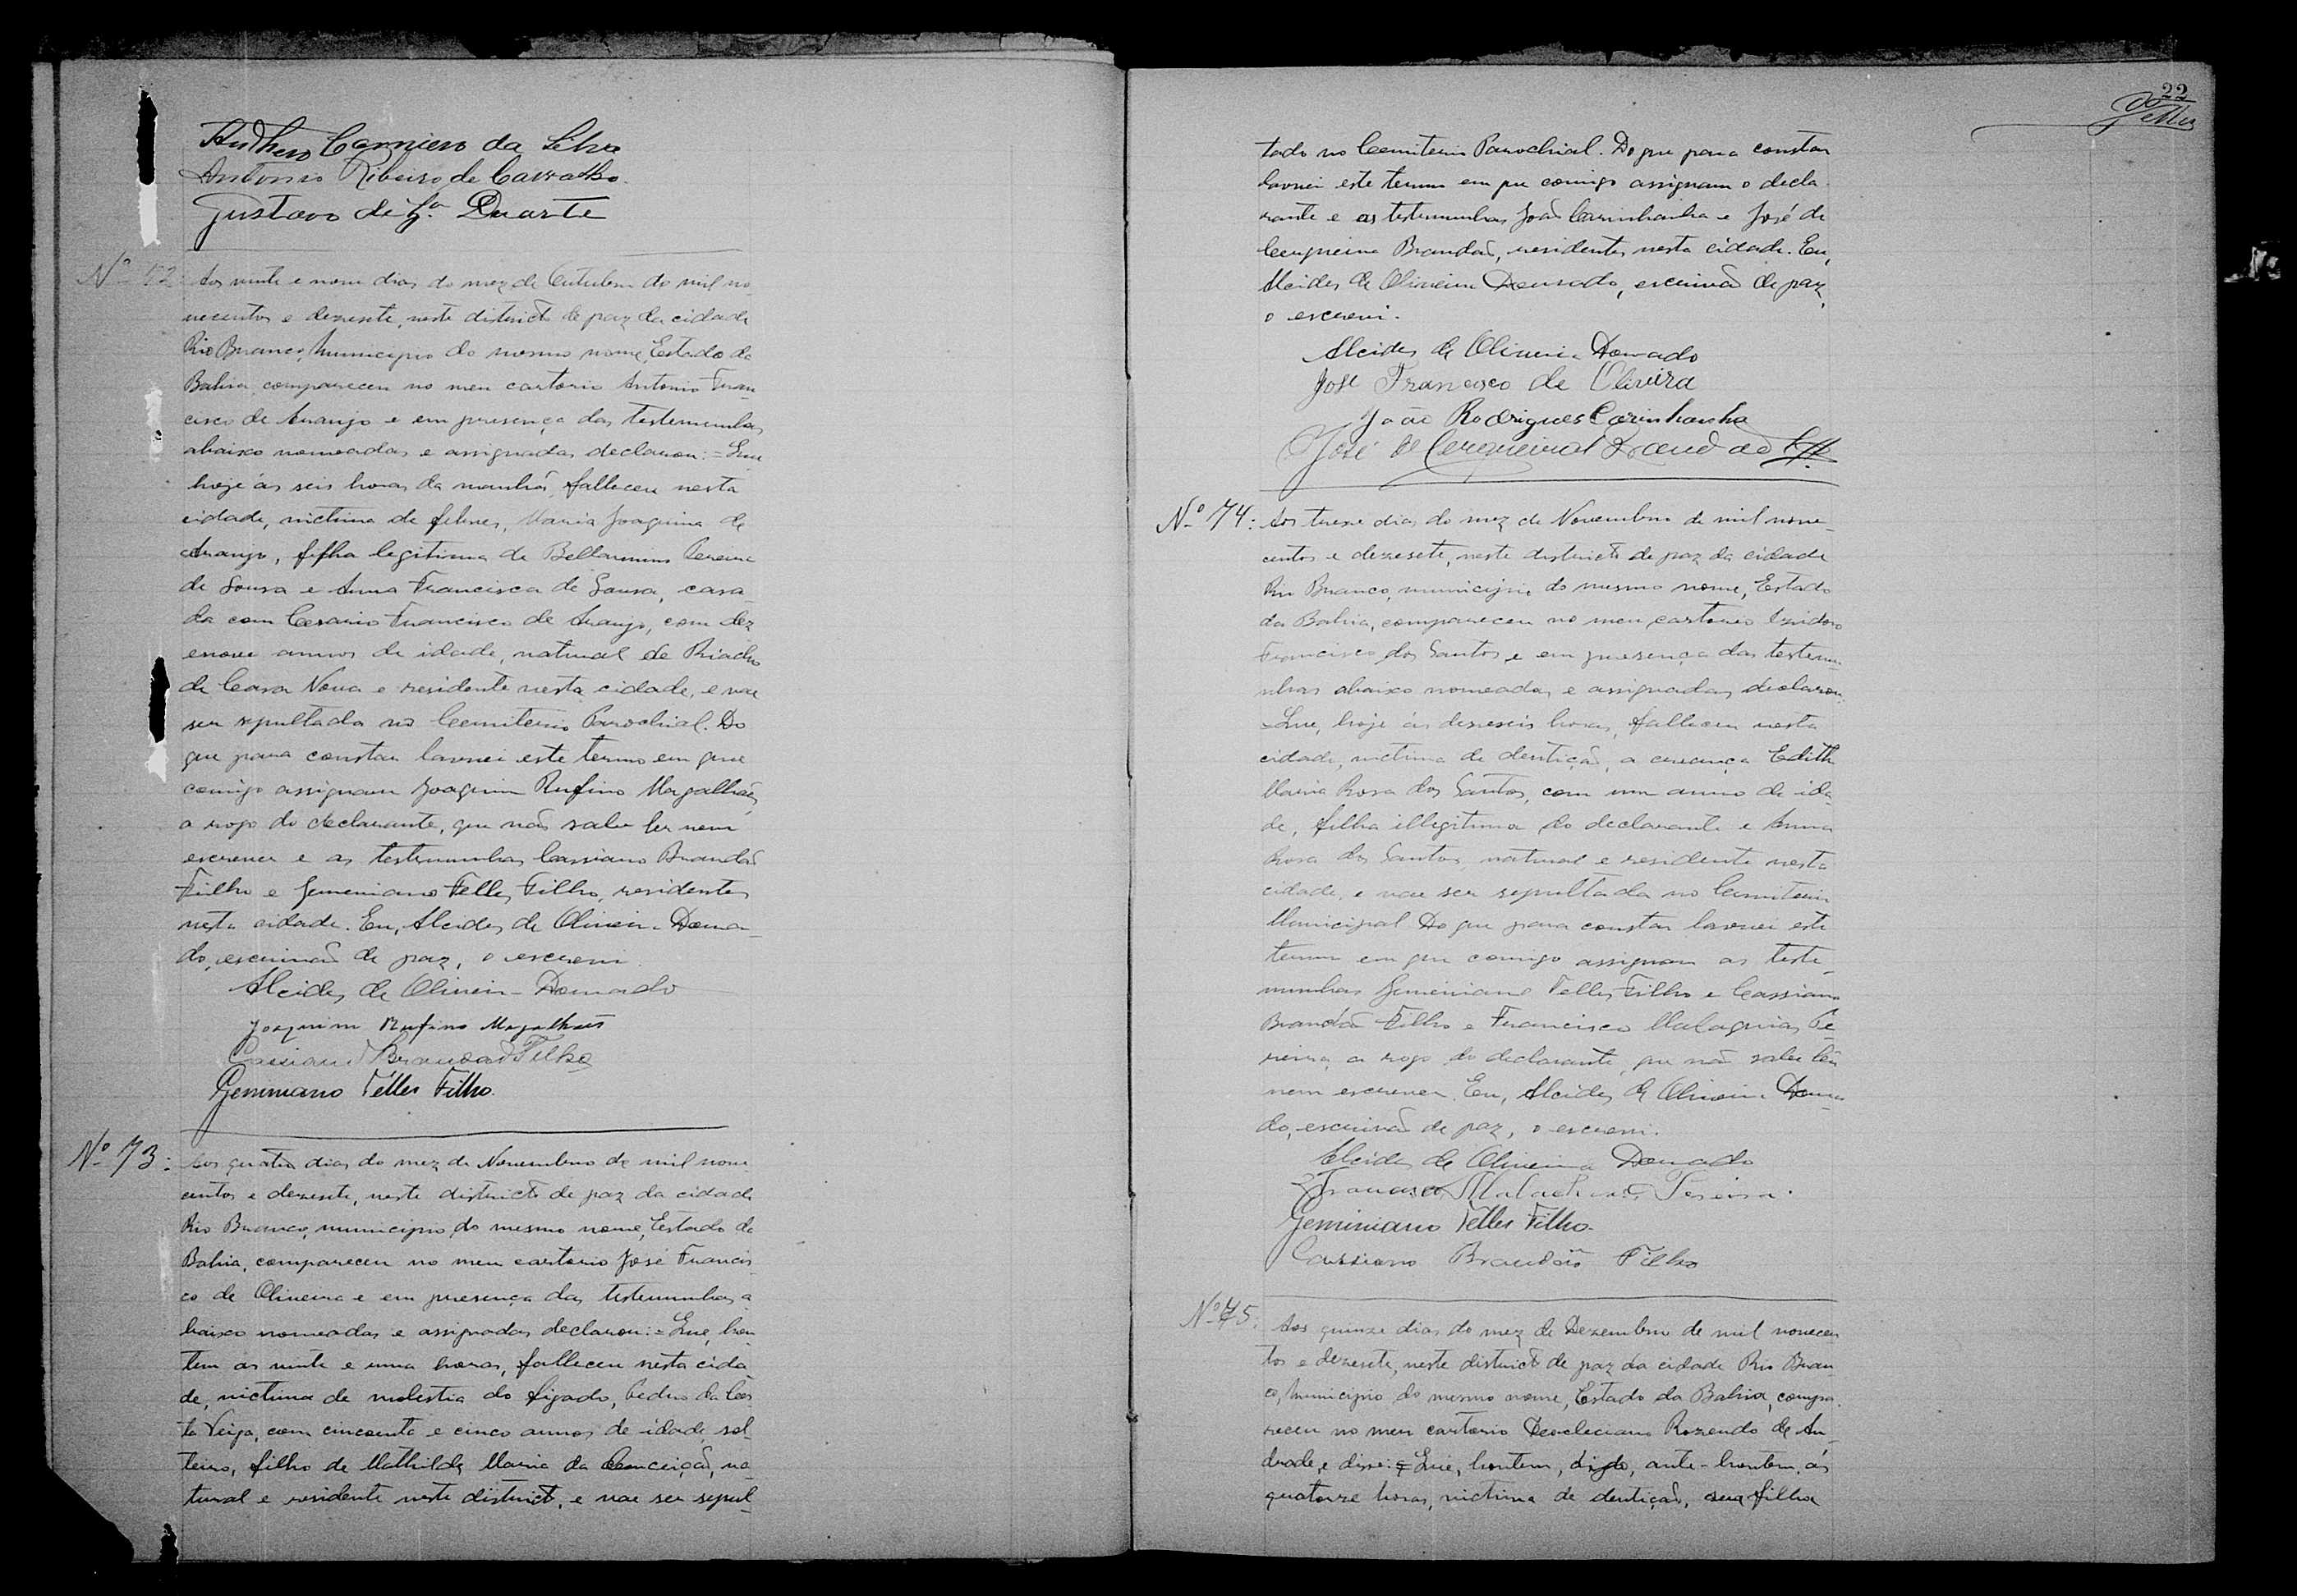 Anthero Carneiro da Silva
Antonio Ribeiro de Carvalho.
Gustavo de Sza Duarte
Nº 72: Aos vinte e nove dias do mez de Outubro de mil no-
vecentos e dezesete, neste districto de paz da cidade
Rio Branco, Municipio do mesmo nome, Estado da
Bahia, compareceu no meu cartorio Antonio Fran
cisco de Araujo e em presença das testemunhas
abaixo nomeadas e assignadas declarou: = Que
hoje ás seis horas da manhã, falleceu nesta
cidade, victima de febres, Maria Joaquina de
Araujo, filha legitima de Bellarmino Pereira
de Sousa e Anna Francisca de Sousa, casa-
da com Cesario Francisco de Araujo, com dez
enove annos de idade, natural de Riacho
de Casa Nova e residente nesta cidade, e vae
ser sepultada no Cemiterio Parochial. Do
que para constar lavrei este termo em que
comigo assignam Joaquim Rufino Magalhães,
a rogo do declarante, que não sabe ler nem
escrever e as testemunhas Cassiano Brandão
Filho e Geminiano Telles Filho, residentes
nesta cidade. Eu, Alcides de Oliveira Doura-
do, escrivão de paz, o escrevi.
Alcides de Oliveira Dourado
Joaquim Rufino Magalhães
Cassiano Brandão Filho
Geminiano Telles Filho.
Nº 73: Aos quatro dias do mez de Novembro de mil nove
centos e dezesete, neste districto de paz da cidade
Rio Branco, municipio do mesmo nome, Estado da
Bahia, compareceu no meu cartorio José Francis
co de Oliveira e em presença das testemunhas a
baixo nomeadas e assignadas declarou: = Que, hon
tem as vinte e uma horas, falleceu nesta cida
de, victima de molestia do figado, Pedro da Cos
ta Veiga, com cincoenta e cinco annos de idade, sol-
teiro, filho de Mathildes Maria da Conceição, na-
tural e residente neste districto, e vae ser sepul-
22
Telles
tado no Cemiterio Parochial. Do que para constar
lavrei este termo em que comigo assignam o decla-
rante e as testemunhas João Carinhanha e José de
Cerqueira Brandão, residentes nesta cidade. Eu,
Alcides de Oliveira Dourado, escrivão de paz,
o escrevi.
Alcides de Oliveira Dourado
José Francisco de Oliveira
João Rodrigues Carinhanha
José de Cerqueira Brandão
Nº 74: Aos treze dias do mez de Novembro de mil nove-
centos e dezesete, neste districto de paz da cidade
Rio Branco, municipio do mesmo nome, Estado
da Bahia, compareceu no meu cartorio Izidoro
Francisco dos Santos, e em presença das testemu-
nhas abaixo nomeadas e assignadas declarou:
= Que, hoje ás dezeseis horas, falleceu nesta
cidade, victima de dentição, a creança Edith
Maria Rosa dos Santos, com um anno de ida-
de, filha illegitima do declarante e Anna
Rosa dos Santos, natural e residente nesta
cidade, e vae ser sepultada no Cemiterio
Municipal. Do que para constar lavrei este
termo em que comigo assignam as teste-
munhas Geminiano Telles Filho e Cassiano
Brandão Filho e Francisco Malaquias Pe-
reira, a rogo do declarante, que não sabe ler
nem escrever. Eu, Alcides de Oliveira Doura-
do, escrivão de paz, o escrevi.
Alcides de Oliveira Dourado
Francisco Malachias Pereira.
Geminiano Telles Filho.
Cassiano Brandão Filho
Nº 75: Aos quinze dias do mez de Dezembro de mil novecen
tos e dezesete, neste districto de paz da cidade Rio Bran
co, Municipio do mesmo nome, Estado da Bahia, compa-
receu no meu cartorio Deocleciano Rozendo de An-
drade, e disse: = Que, hontem, digo, ante-hontem, ás
quatorze horas, victima de dentição, sua filha